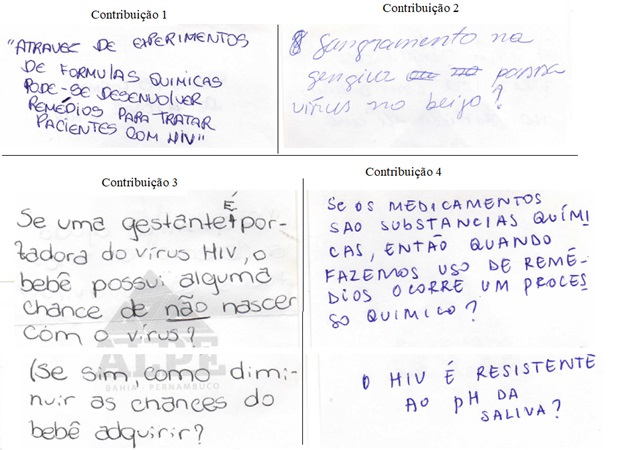 Contribuição 1
"ATRAVEC DE EXPERIMENTOS
DE FORMULAS QUIMICAS
PODE-SE DESENVOLVER
REMÉDIOS PARA TRATAR
PACIENTES COM HIV"
Contribuição 2
Sangramento na
gengiva passa
vírus no beijo?
Contribuição 3
É
Se uma gestante por-
tadora do vírus HIV, o
bebê possui alguma
chance de não nascer
com o vírus?
(Se sim, como dimi-
nuir as chances do
bebê adquirir?
ALPE
BAHIA - PERNAMBUCO
Contribuição 4
SE OS MEDICAMENTOS
SAO SUBSTANCIAS QUÍMI
CAS, ENTÃO QUANDO
FAZEMOS USO DE REMÉ-
DIOS OCORRE UM PROCES
SO QUIMICO?
O HIV É RESISTENTE
AO PH DA
SALIVA?